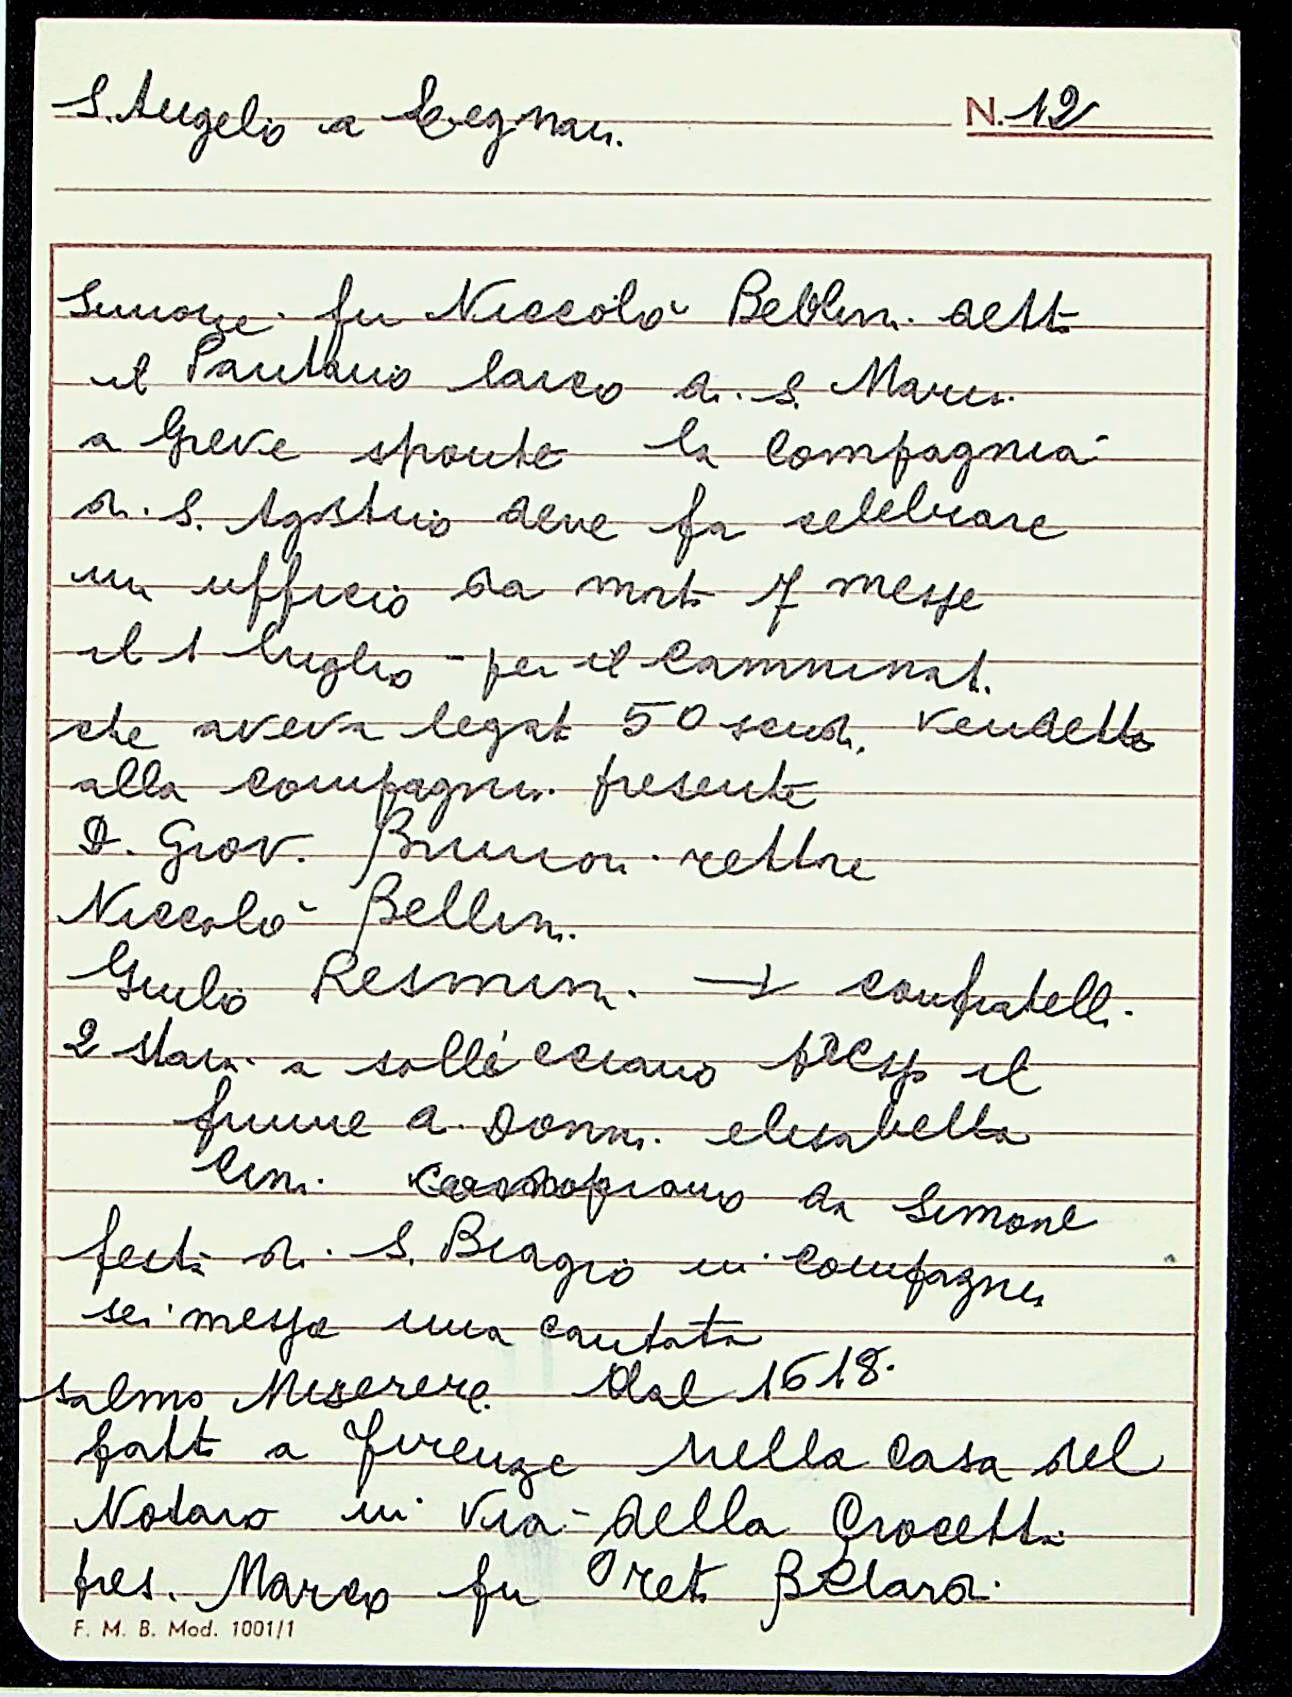 S. Angelo a Legnaia.
N. 12
Simone fu Niccolò Bellini dett
il Pantano laico di S. Maria
a Greve sponte la Compagnia
di S. Agstino deve fa celebrare
un ufficio da morti 7 messe
il 1 luglio - per il Camminat.
che aveva legat 50 scudi, vendette
alla compagnia presente
D. Giov. Brunori rettore
Niccolò Bellini
Giulio Resmini → confratelli
2 staia a sollicciano il
fiume a Donna elisabetta
Cini da Simone
festa di S. Biagio in compagnia
sei messe una cantata
salmo Miserere. Dal 1618.
fatt a Firenze nella casa del
Notaro in Via della Crocetta
pres. Marco fu
F. M. B. Mod. 1001/1